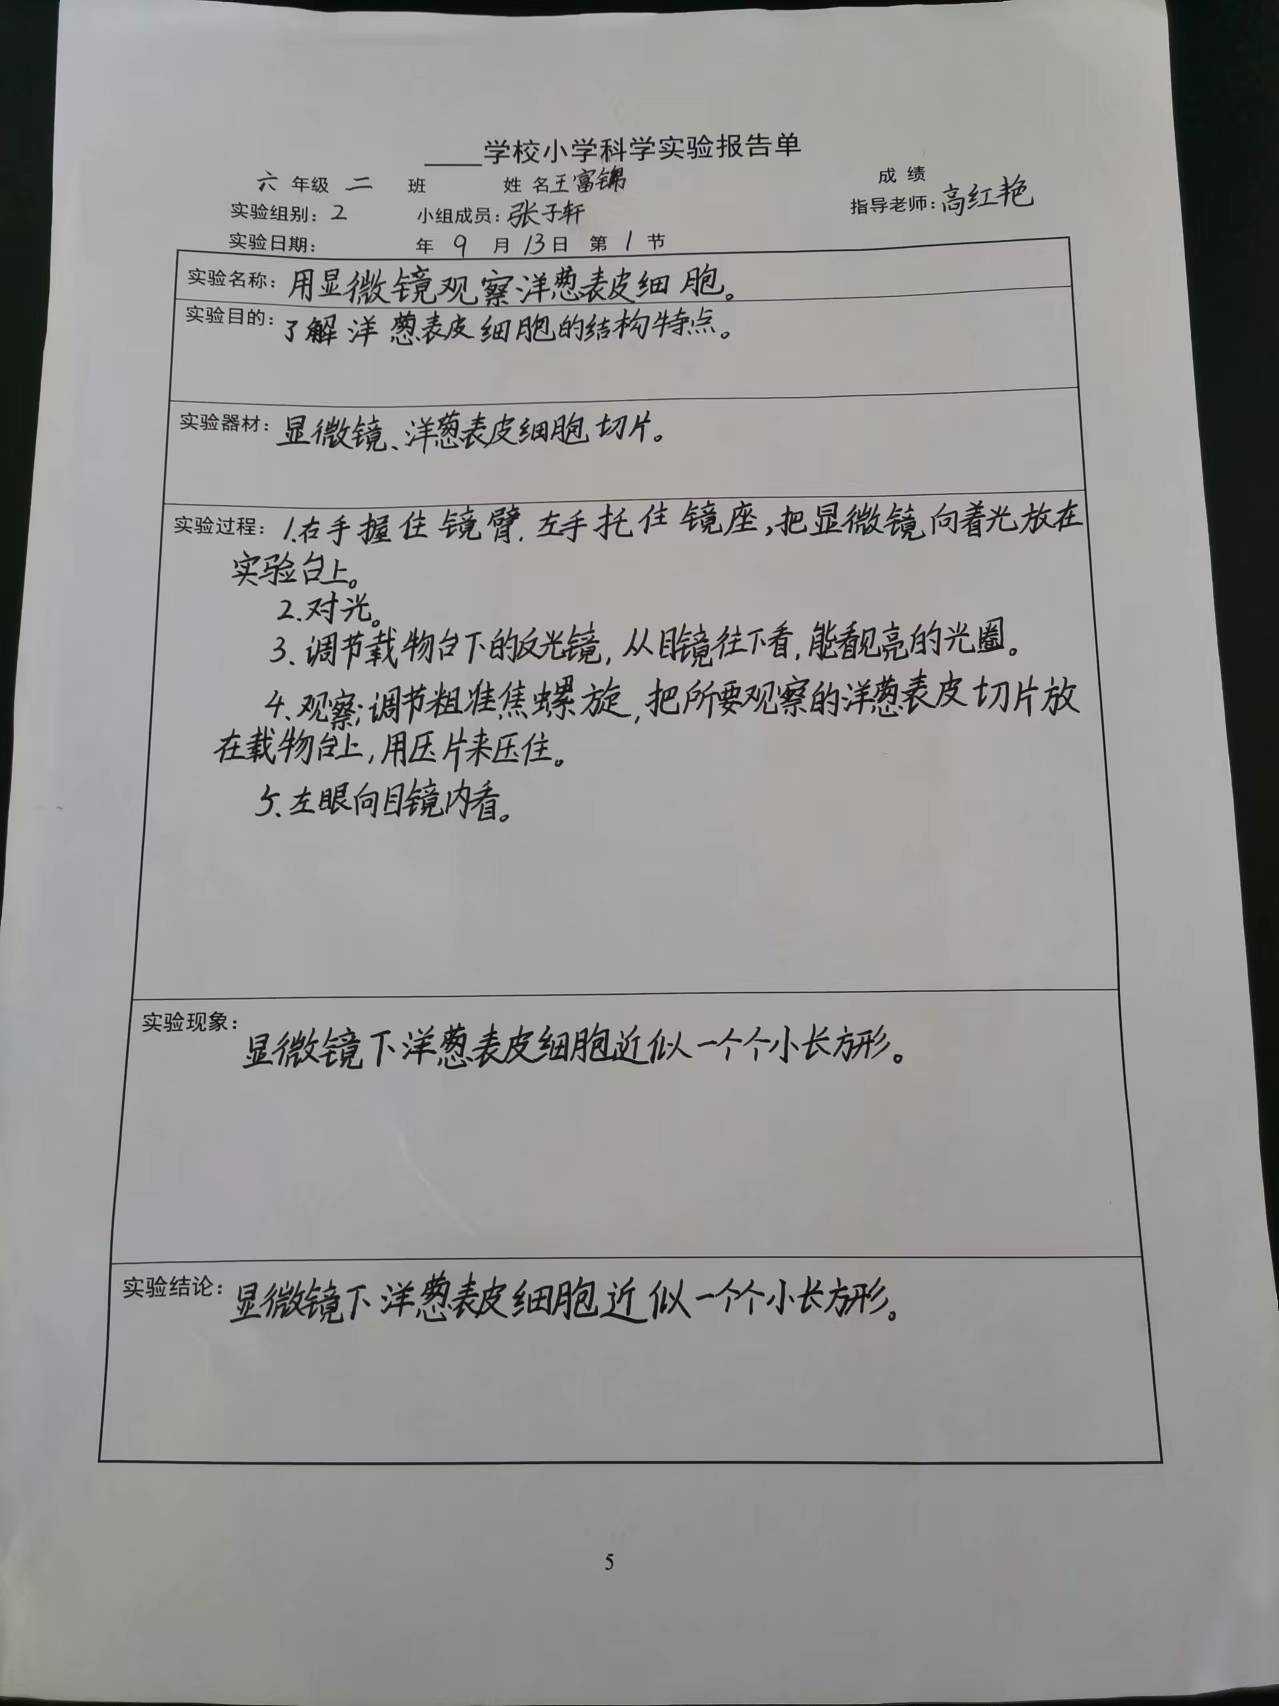 ____学校小学科学实验报告单
六 年级 二 班 姓 名 王富锦 成 绩
实验组别：2 小组成员：张子轩 指导老师：高红艳
实验日期： 年 9 月 13日 第 1 节
实验名称：用显微镜观察洋葱表皮细胞。
实验目的：了解洋葱表皮细胞的结构特点。
实验器材：显微镜、洋葱表皮细胞切片。
实验过程：1.右手握住镜臂，左手托住镜座，把显微镜向着光放在
实验台上。
2.对光。
3、调节载物台下的反光镜，从目镜往下看，能看见亮的光圈。
4、观察；调节粗准焦螺旋，把所要观察的洋葱表皮切片放
在载物台上，用压片来压住。
5、左眼向目镜内看。
实验现象：显微镜下洋葱表皮细胞近似一个个小长方形。
实验结论：显微镜下洋葱表皮细胞近似一个个小长方形。
5